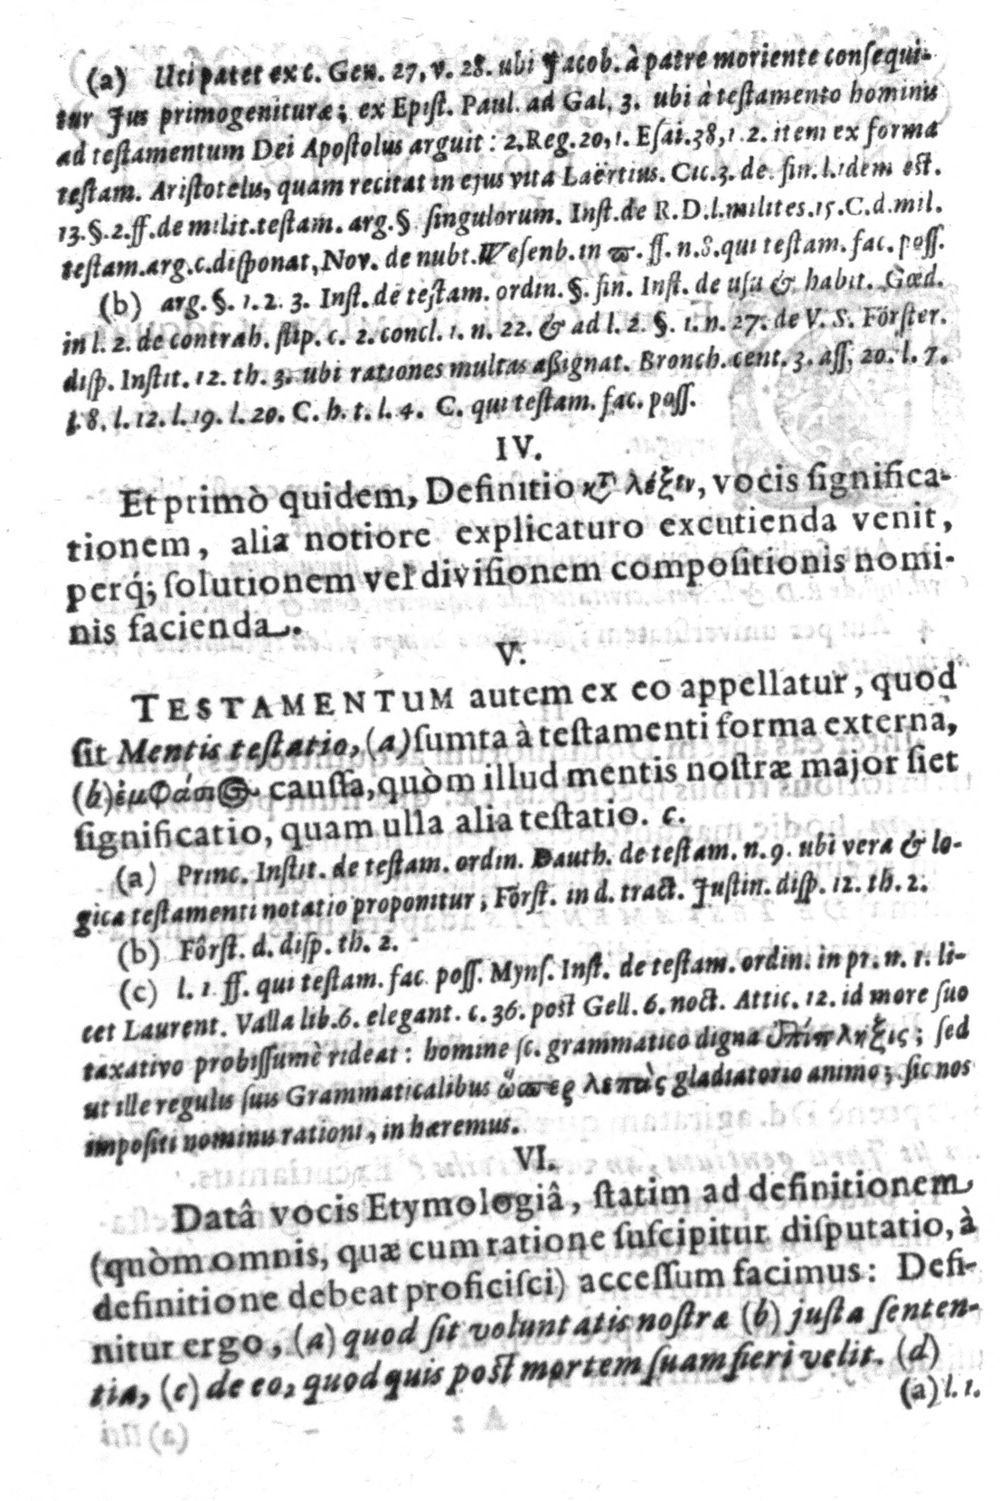 (a) Uti patet ex c. Gen. 27, v. 28. ubi Jacob. à patre moriente conſequi-
tur Jus primogenituræ; ex Epiſt. Paul. ad Gal. 3. ubi à teſtamento hominis
ad teſtamentum Dei Apoſtolus arguit: 2. Reg. 20, 1. Eſai. 38, 1. 2. item ex forma
teſtam. Ariſtotelis, quam recitat in ejus vita Laërtius. Cic. 3. de fin. l. idem eſt.
13. §. 2. ff. de milit. teſtam. arg. §. ſingulorum. Inſt. de R. D. l. milites. 15. C. d. mil.
teſtam. arg. c. diſponat, Nov. de nubt. Weſenb. in ϖ. ff. n. 8. qui teſtam. fac. poſſ.
(b) arg. §. 1. 2. 3. Inſt. de teſtam. ordin. §. fin. Inſt. de uſu & habit. Gœd.
in l. 2. de contrah. ſtip. c. 2. concl. 1. n. 22. & ad l. 2. §. 1. n. 27. de V. S. Förſter.
diſp. Inſtit. 12. th. 3. ubi rationes multas aßignat. Bronch. cent. 3. aſſ. 20. l. 7.
l. 8. l. 12. l. 19. l. 20. C. h. t. l. 4. C. qui teſtam. fac. poſſ.
IV.
Et primò quidem, Definitio κτ̀ λέξιν, vocis ſignifica-
tionem, alia notiore explicaturo excutienda venit,
perq́; ſolutionem vel diviſionem compoſitionis nomi-
nis facienda.
V.
TESTAMENTUM autem ex eo appellatur, quod
ſit Mentis teſtatio, (a) ſumta à teſtamenti forma externa,
(b) ἐμφάσεως cauſſa, quòm illud mentis noſtræ major ſiet
ſignificatio, quam ulla alia teſtatio. c.
(a) Princ. Inſtit. de teſtam. ordin. Dauth. de teſtam. n. 9. ubi vera & lo-
gica teſtamenti notatio proponitur, Förſt. in d. tract. Juſtin. diſp. 12. th. 2.
(b) Förſt. d. diſp. th. 2.
(c) l. 1. ff. qui teſtam. fac. poſſ. Mynſ. Inſt. de teſtam. ordin. in pr. n. 1. li-
cet Laurent. Valla lib. 6. elegant. c. 36. poſt Gell. 6. noct. Attic. 12. id more ſuo
taxativo probiſſumè rideat: homine ſc. grammatico digna ἐπίπληξις; ſed
ut ille regulis ſuis Grammaticalibus ὥσπερ λεπὰς gladiatorio animo; ſic nos
impoſiti nominis rationi, in hæremus.
VI.
Datâ vocis Etymologiâ, ſtatim ad definitionem
(quòm omnis, quæ cum ratione ſuſcipitur diſputatio, à
definitione debeat proficiſci) acceſſum facimus: Defi-
nitur ergo, (a) quod ſit voluntatis noſtræ (b) juſta ſenten-
tia, (c) de eo, quod quis poſt mortem ſuam fieri velit. (d)
(a) l. 1.